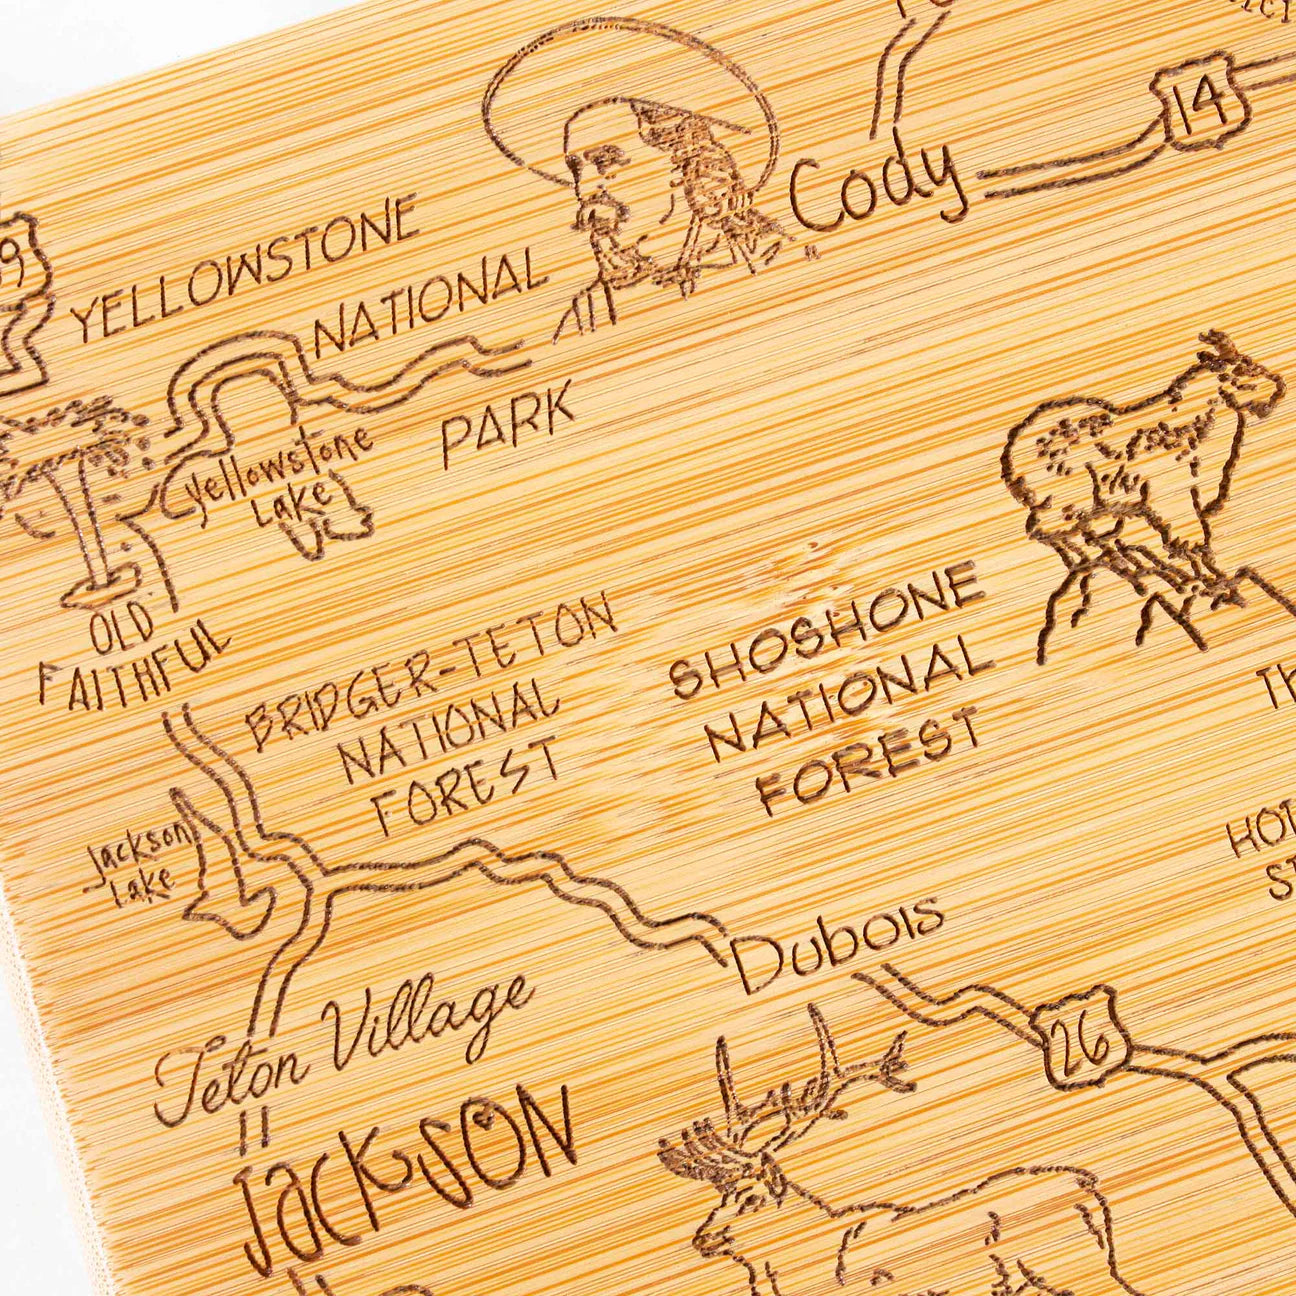 14
Cody
YELLOWSTONE
NATIONAL
PARK
Yellowstone
Lake
OLD
FAITHFUL
BRIDGER-TETON
NATIONAL
FOREST
SHOSHONE
NATIONAL
FOREST
Jackson
Lake
Dubois
26
Teton Village
JACKSON